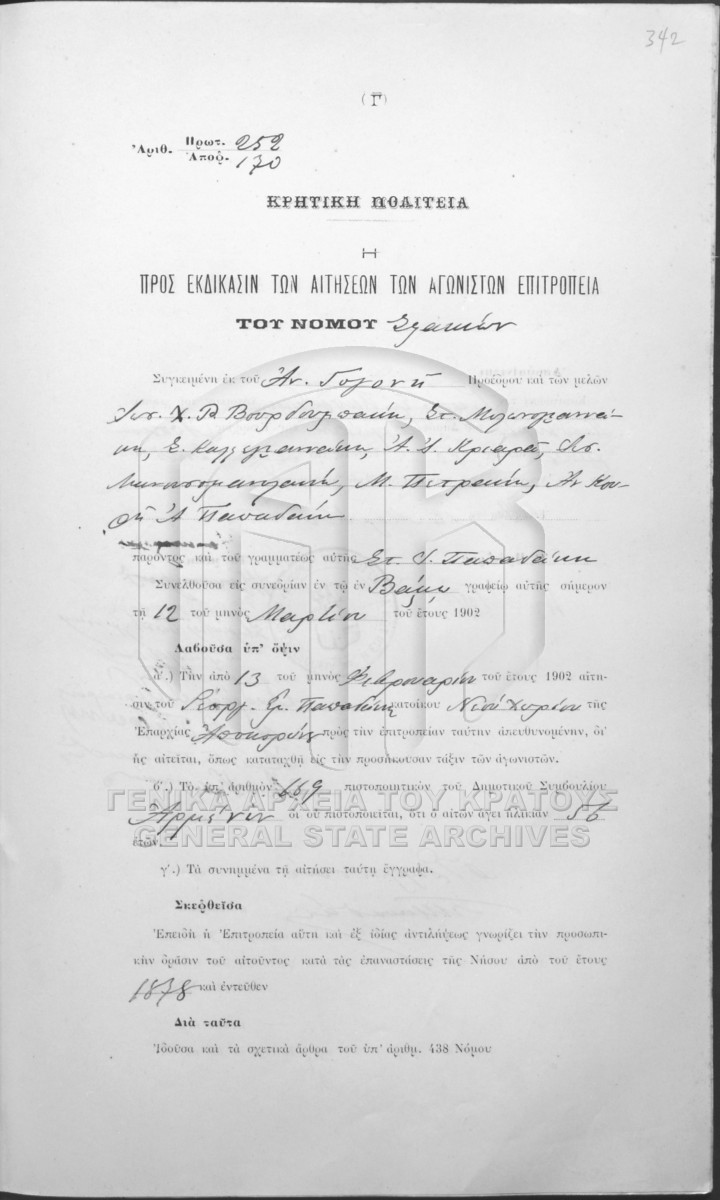 342
(Γ)
Ἀριθ. Πρωτ. 252
Ἀποφ. 170
ΚΡΗΤΙΚΗ ΠΟΛΙΤΕΙΑ
Η
ΠΡΟΣ ΕΚΔΙΚΑΣΙΝ ΤΩΝ ΑΙΤΗΣΕΩΝ ΤΩΝ ΑΓΩΝΙΣΤΩΝ ΕΠΙΤΡΟΠΕΙΑ
ΤΟΥ ΝΟΜΟΥ Σφακιών
Συγκειμένη ἐκ τοῦ Ἀν. Γογονῆ Προέδρου καὶ τῶν μελῶν
Χ. Βουρδουμπάκη, Στ.
Σ. Καλλιγιαννάκη, Κριαρᾶ,
Μ. Πετράκη, Ἀν
Ἀ Παπαδάκη
παρόντος καὶ τοῦ γραμματέως αὐτῆς Στ. Παπαδάκη
Συνελθοῦσα εἰς συνεδρίαν ἐν τῷ ἐν Βάμῳ γραφείῳ αὐτῆς σήμερον
τῇ 12 τοῦ μηνὸς Μαρτίου τοῦ ἔτους 1902
Λαβοῦσα ὑπ' ὄψιν
α'.) Τὴν ἀπὸ 13 τοῦ μηνὸς Φεβρουαρίου τοῦ ἔτους 1902 αἴτη-
σιν τοῦ Γεωργ. Παπαδάκη κατοίκου Νεοῦ Χωρίου τῆς
Ἐπαρχίας Ἀποκορώνου πρὸς τὴν ἐπιτροπείαν ταύτην ἀπευθυνομένην, δι'
ἧς αἰτεῖται, ὅπως καταταχθῇ εἰς τὴν προσήκουσαν τάξιν τῶν ἀγωνιστῶν.
β'.) Τὸ ὑπ' ἀριθμὸν 669 πιστοποιητικὸν τοῦ Δημοτικοῦ Συμβουλίου
ΓΕΝΙΚΑ ΑΡΧΕΙΑ ΤΟΥ ΚΡΑΤΟΥΣ
Ἀρμένων δι' οὗ πιστοποιεῖται, ὅτι ὁ αἰτῶν ἄγει ἡλικίαν 56
GENERAL STATE ARCHIVES
ἐτῶν.
γ'.) Τὰ συνημμένα τῇ αἰτήσει ταύτῃ ἔγγραφα.
Σκεφθεῖσα
Ἐπειδὴ ἡ Ἐπιτροπεία αὕτη καὶ ἐξ ἰδίας ἀντιλήψεως γνωρίζει τὴν προσωπι-
κὴν δρᾶσιν τοῦ αἰτοῦντος κατὰ τὰς ἐπαναστάσεις τῆς Νήσου ἀπὸ τοῦ ἔτους
1878 καὶ ἐντεῦθεν
Διὰ ταῦτα
Ἰδοῦσα καὶ τὰ σχετικὰ ἄρθρα τοῦ ὑπ' ἀριθμ. 438 Νόμου